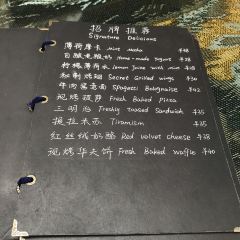 招牌推荐
Signature Delicious
薄荷摩卡 Mint Mocha ¥38
自酿老酸奶 Home-made Yogurt ¥28
柠檬薄荷水 Lemon Juice with mint ¥28
秘制烤翅 Secret Grilled wings ¥30
牛肉酱意面 Spagetti Bolognaise ¥42
现烤披萨 Fresh Baked Pizza
三明治 Freshly toasted Sandwich ¥35
提拉米苏 Tiramism ¥35
红丝绒奶酪 Red velvet cheese ¥38
现烤华夫饼 Fresh Baked waffle ¥40